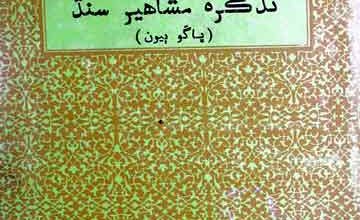 تذڪره مشاهير سنڌ
(ڀاڱو ٻيون)